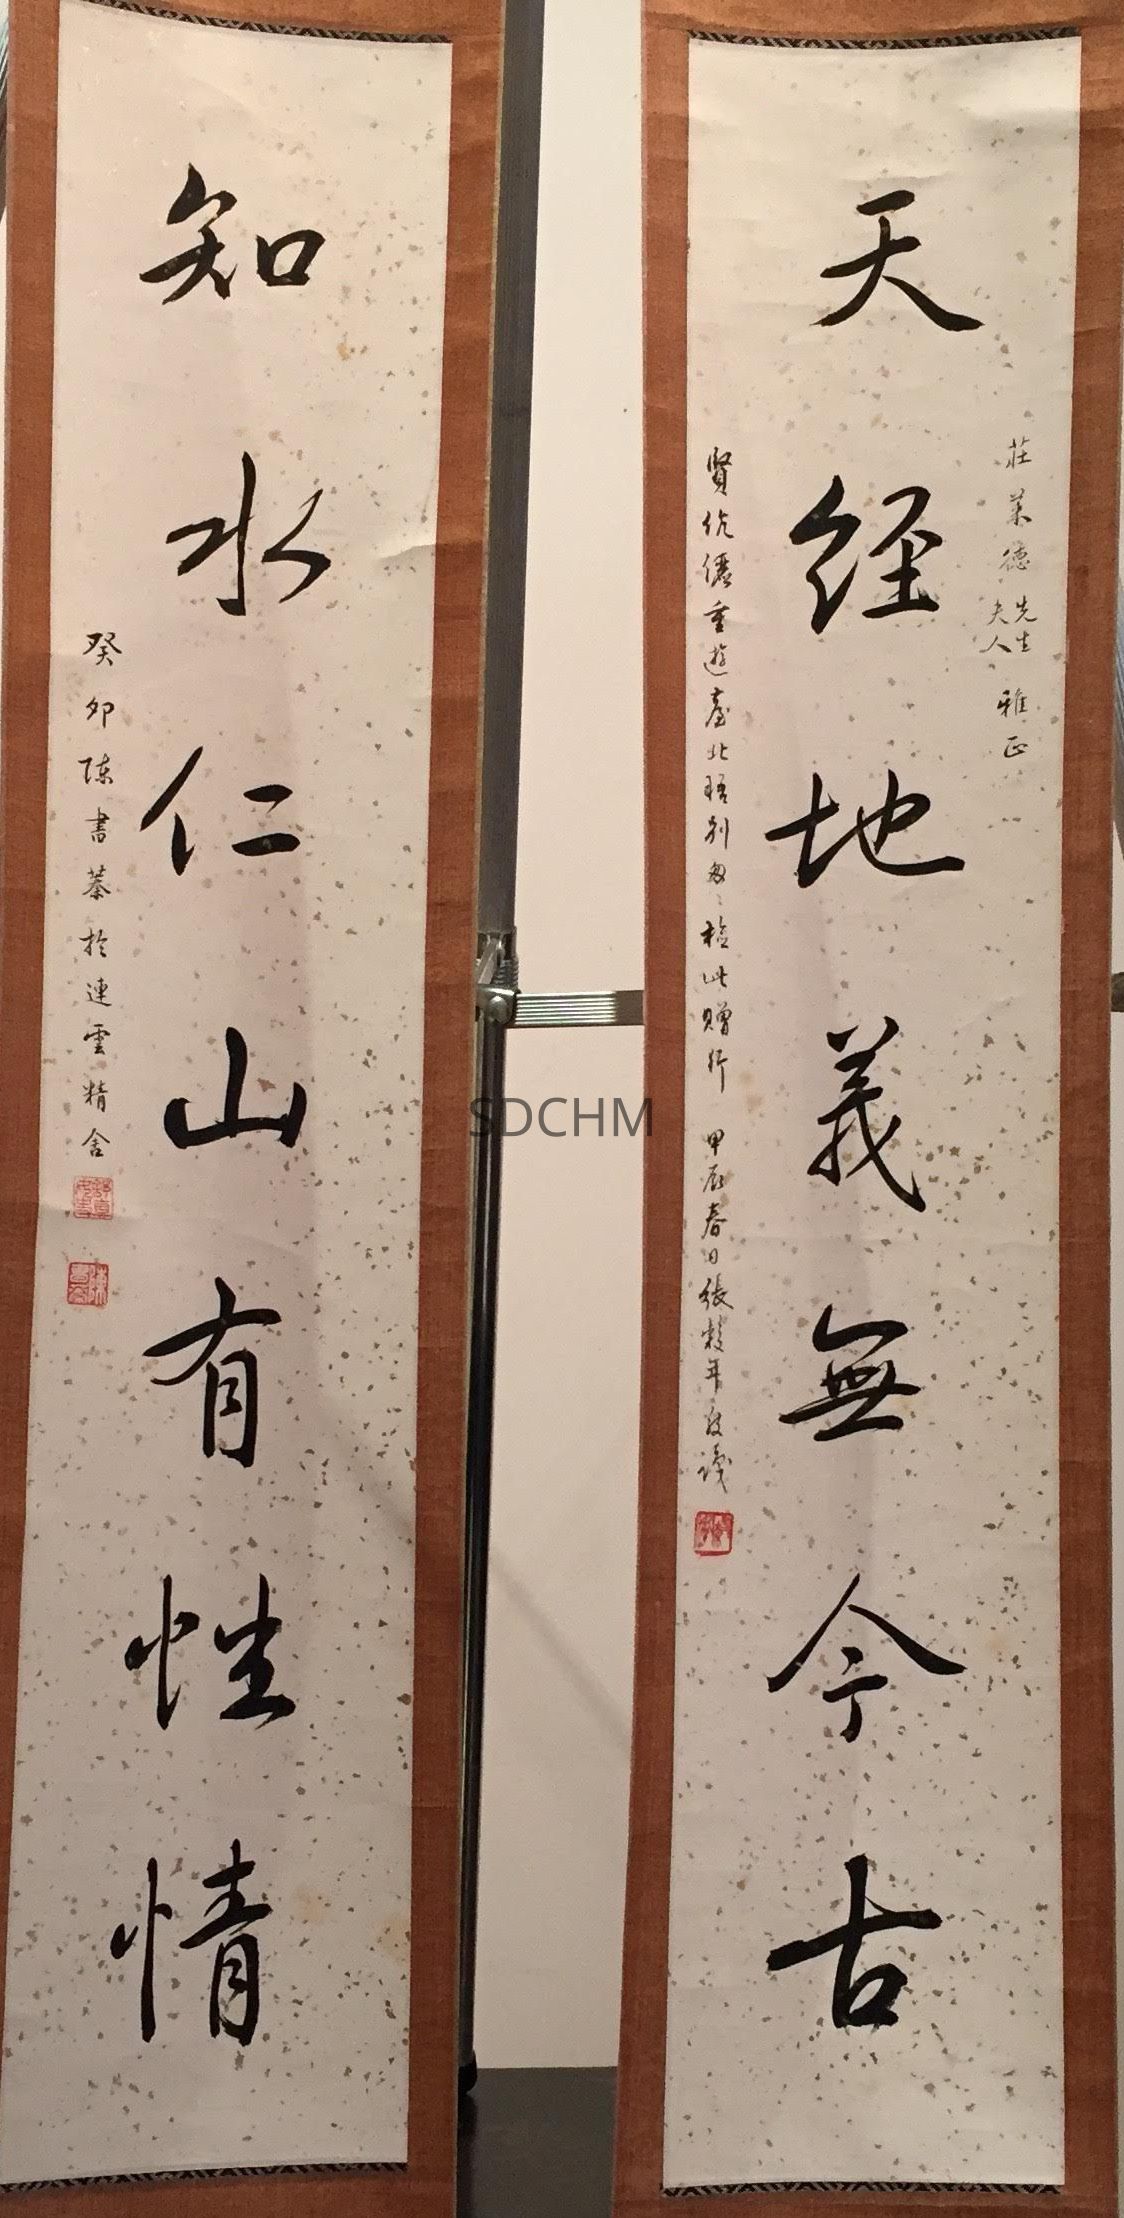 天經地義無今古
莊萊德先生夫人 雅正
賢伉儷重遊臺北晤別匆匆檢此贈行 甲辰春日張
知水仁山有性情
癸卯陳書蓁於連雲精舍
SDCHM